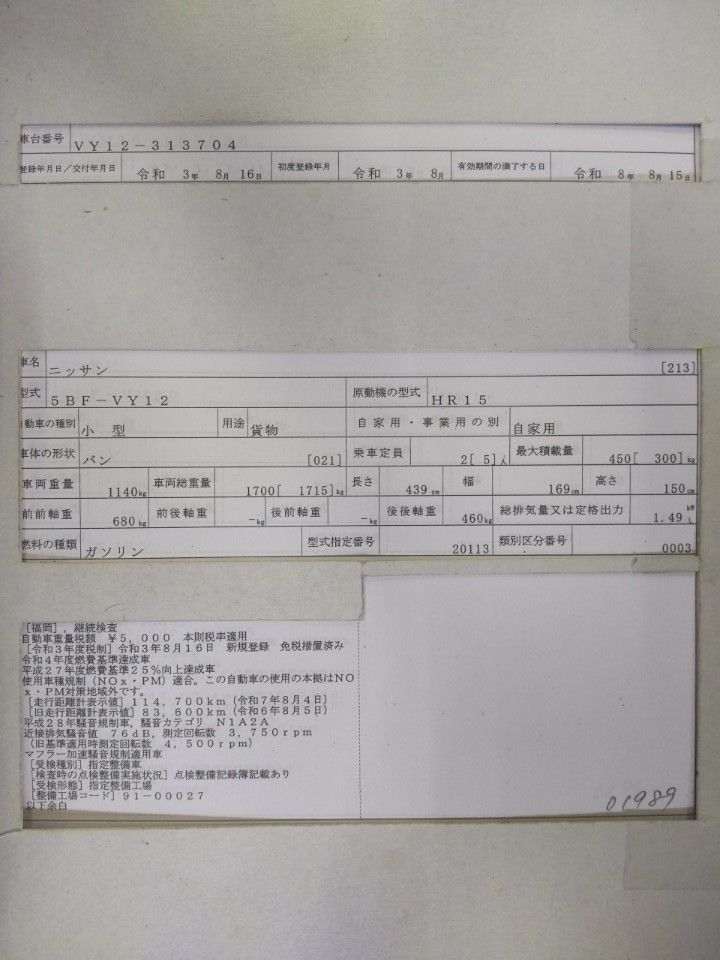 車台番号 VY12-313704
登録年月日/交付年月日 令和 3年 8月 16日 初度登録年月 令和 3年 8月 有効期間の満了する日 令和 8年 8月 15日
車名 ニッサン [213]
型式 5BF-VY12 原動機の型式 HR15
自動車の種別 小 型 用途 貨物 自家用・事業用の別 自家用
車体の形状 バン [021] 乗車定員 2[ 5]人 最大積載量 450[ 300]kg
車両重量 1140kg 車両総重量 1700[ 1715]kg 長さ 439cm 幅 169cm 高さ 150cm
前前軸重 680kg 前後軸重 -kg 後前軸重 -kg 後後軸重 460kg 総排気量又は定格出力 1.49 kW L
燃料の種類 ガソリン 型式指定番号 20113 類別区分番号 0003
[福岡],継続検査
自動車重量税額 ¥5,000 本則税率適用
[令和3年度税制]令和3年8月16日 新規登録 免税措置済み
令和4年度燃費基準達成車
平成27年度燃費基準25%向上達成車
使用車種規制(NOx・PM)適合。この自動車の使用の本拠はNO
x・PM対策地域外です。
[走行距離計表示値]114,700km(令和7年8月4日)
[旧走行距離計表示値]83,600km(令和6年8月5日)
平成28年騒音規制車,騒音カテゴリ N1A2A
近接排気騒音値 76dB,測定回転数 3,750rpm
(旧基準適用時測定回転数 4,500rpm)
マフラー加速騒音規制適用車
[受検種別]指定整備車
[検査時の点検整備実施状況]点検整備記録簿記載あり
[受検形態]指定整備工場
[整備工場コード]91-00027
以下余白
01989